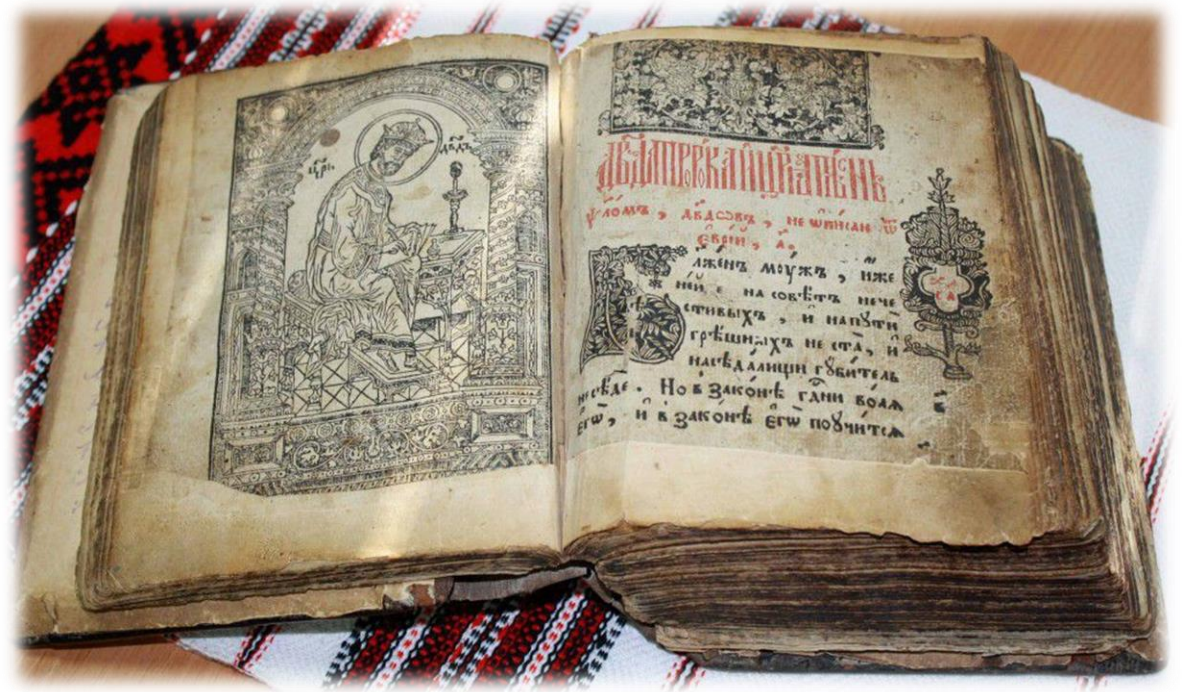 цр҃ї. дв҃дъ
дв҃да прⷪ҇рка и цр҃ѧ пѣснь
ѱ҃ломъ, дв҃довъ, не ѡписан ѿ
єврїй, а҃.
Блженъ моужъ, иже
на совѣтъ нече
стивыхъ, и напꙋти
грѣшныхъ не ста, и
насѣдалищи гꙋбитель
несѣде. Но в законѣ гд҇ни волѧ
єгѡ, и в законѣ єгѡ поучитсѧ